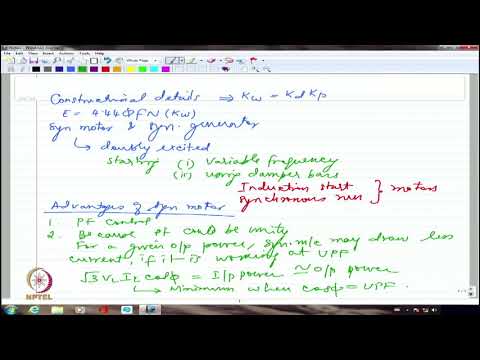 Constructional details ⇒ Kw = Kd Kp
E = 4.44 Φ f N (Kw)
Syn motor & Syn. generator
↳ doubly excited
starting (i) variable frequency
(ii) using damper bars
Induction start } motors
Synchronous run
Advantages of syn motor
1. PF control
2. Because pf could be unity
For a given o/p power, syn. m/c may draw less
current, if it is working at UPF
√3 VL IL cosφ = I/p power ≃ o/p power
↳ Minimum when cosφ = UPF.
NPTEL